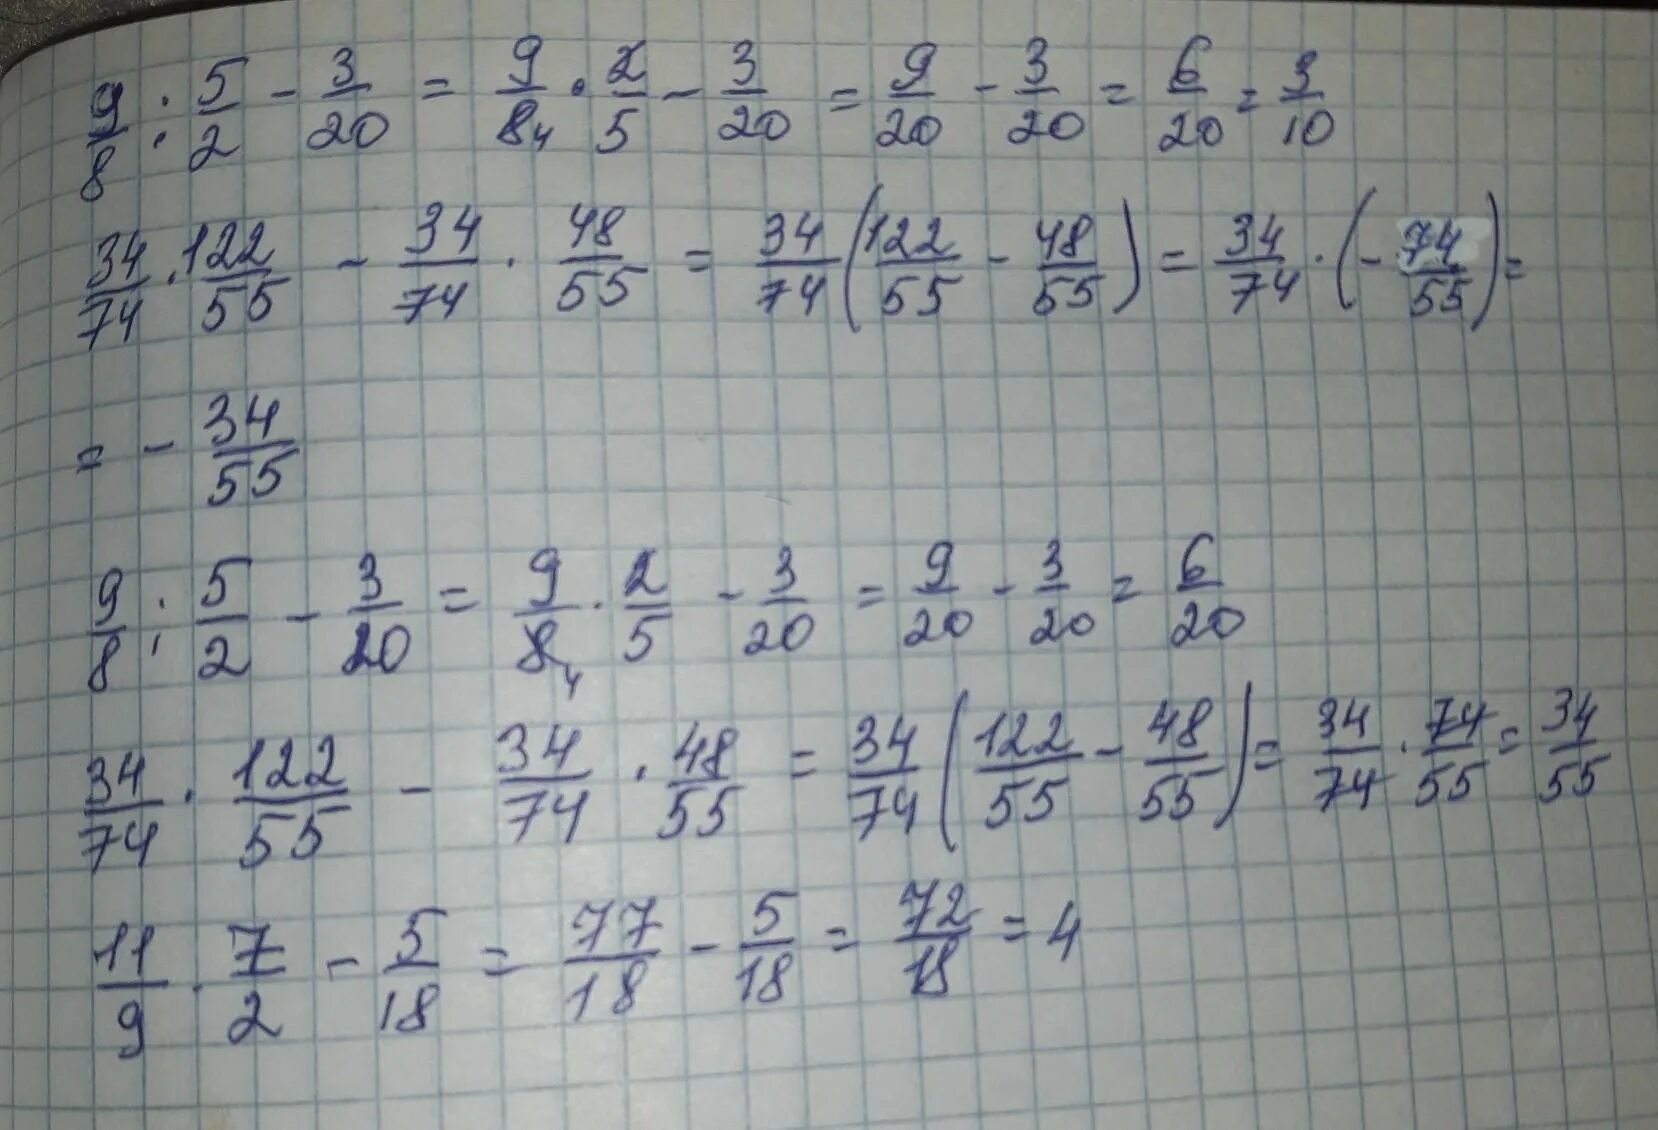 9/8 : 5/2 - 3/20 = 9/8₄ · 2/5 - 3/20 = 9/20 - 3/20 = 6/20 = 3/10
34/74 · 122/55 - 34/74 · 48/55 = 34/74 (122/55 - 48/55) = 34/74 · (- 74/55) =
= - 34/55
9/8 : 5/2 - 3/20 = 9/8₄ · 2/5 - 3/20 = 9/20 - 3/20 = 6/20
34/74 · 122/55 - 34/74 · 48/55 = 34/74 (122/55 - 48/55) = 34/74 · 74/55 = 34/55
11/9 · 7/2 - 5/18 = 77/18 - 5/18 = 72/18 = 4